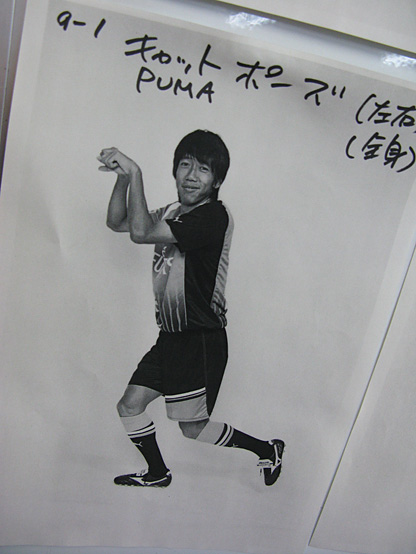 9-1 キャット ポーズ (左右
PUMA (全身)